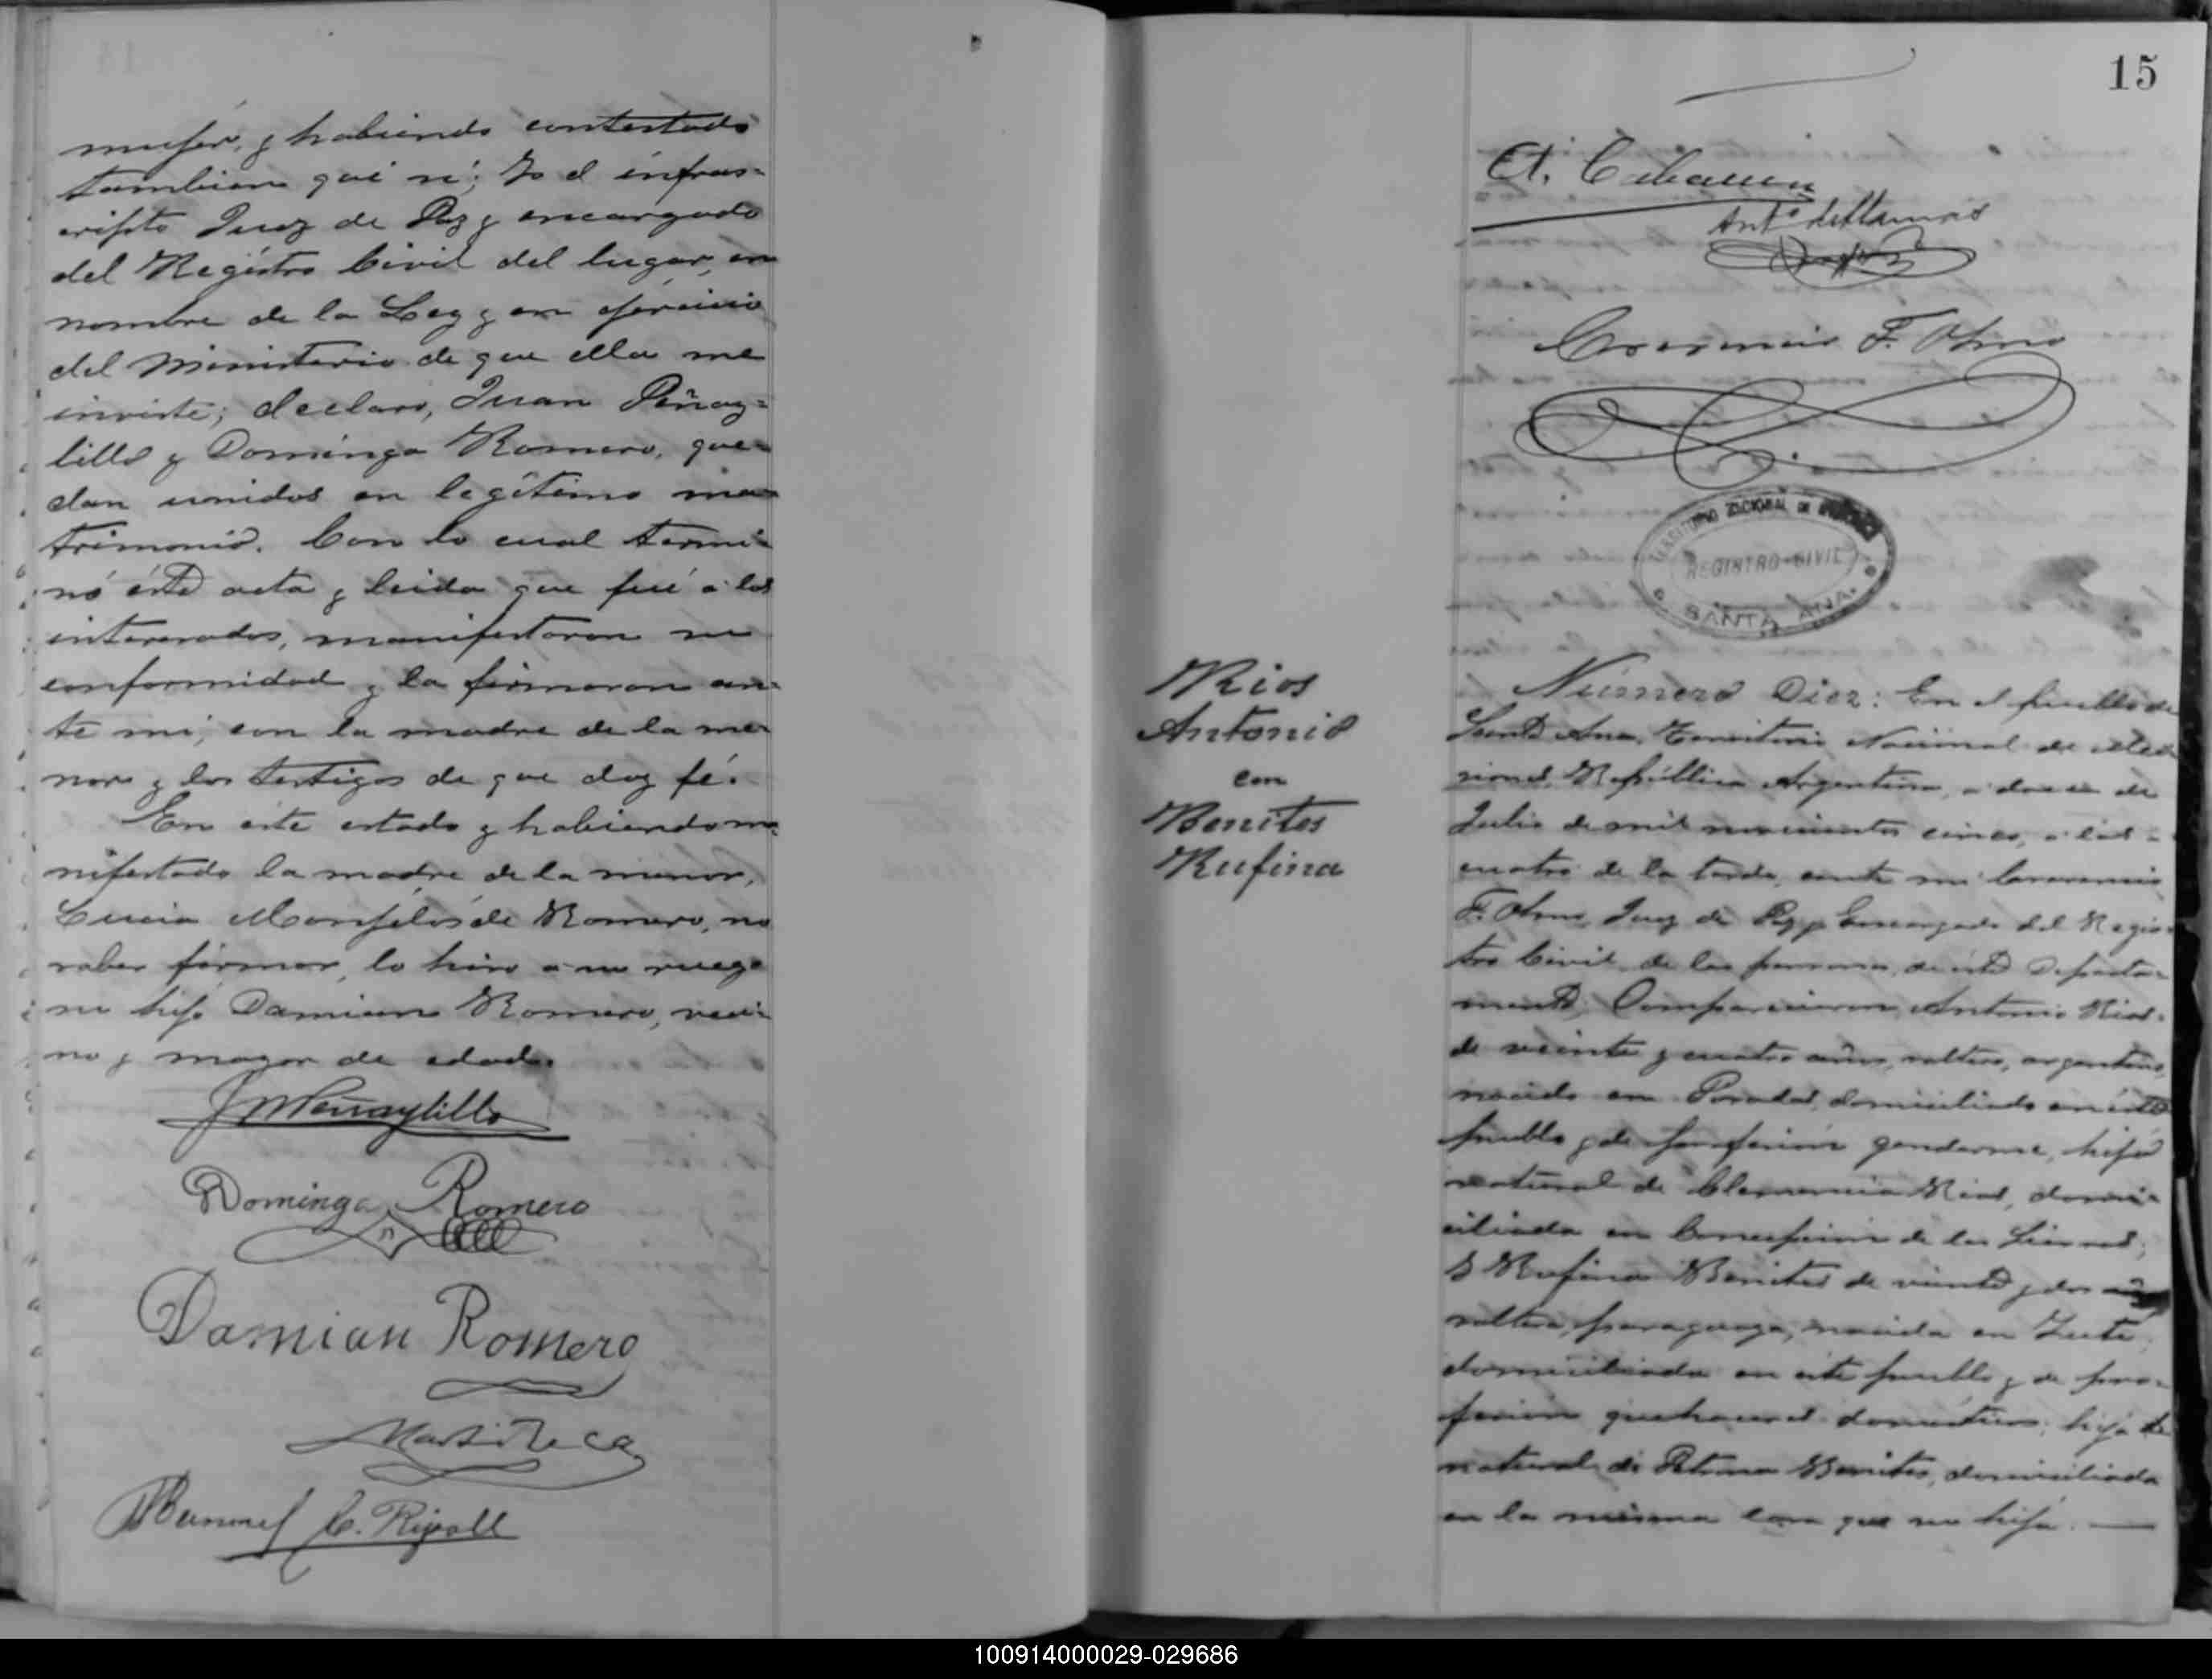 mujer, y habiendo contestado
tambien que si; Yo el infras=
cripto Juez de Paz y encargado
del Registro Civil del lugar, en
nombre de la Ley y en ejercicio
del Ministerio de que ella me
inviste; declaro, Juan Peñay=
lillo y Dominga Romero, que=
dan unidos en legítimo ma=
trimonio. Con lo cual termi=
nó ésta acta y leida que fué á los
interesados, manifestaron su
conformidad y la firmaron an=
te mi, con la madre de la me=
nor y los testigos de que doy fé.
En este estado y habiendo ma=
nifestado la madre de la menor,
Lucia de Romero, no
saber firmar, lo hizo a su ruego
su hijo Damian Romero, veci=
no y mayor de edad.
Peñaylillo
Dominga Romero
Damian Romero
Manuel C. Ripoll
15
F. Olmo
TERRITORIO NACIONAL DE MISIONES
REGISTRO CIVIL
SANTA ANA
Rios
Antonio
con
Benites
Rufina
Número Diez: En el pueblo de
Santa Ana, Territorio Nacional de Mi=
siones, República Argentina, a doce de
Julio de mil novecientos cinco, a las
cuatro de la tarde, ante mi
F. Olmo, Juez de Paz y Encargado del Regis=
tro Civil de las personas, de ésta Departa=
mento; Comparecieron Antonio Rios
de veinte y cuatro años, soltero, argentino,
nacido en Posadas, domiciliado en éste
pueblo y de profesion gendarme, hijo
natural de Clemencia Rios, domi=
ciliada en Concepcion de la Sierra;
Y Rufina Benites de veinte y dos años
soltera, paraguaya, nacida en Yuti,
domiciliada en este pueblo y de pro=
fesion quehaceres domésticos, hija
natural de Petrona Benites, domiciliada
en la misma casa que su hija.